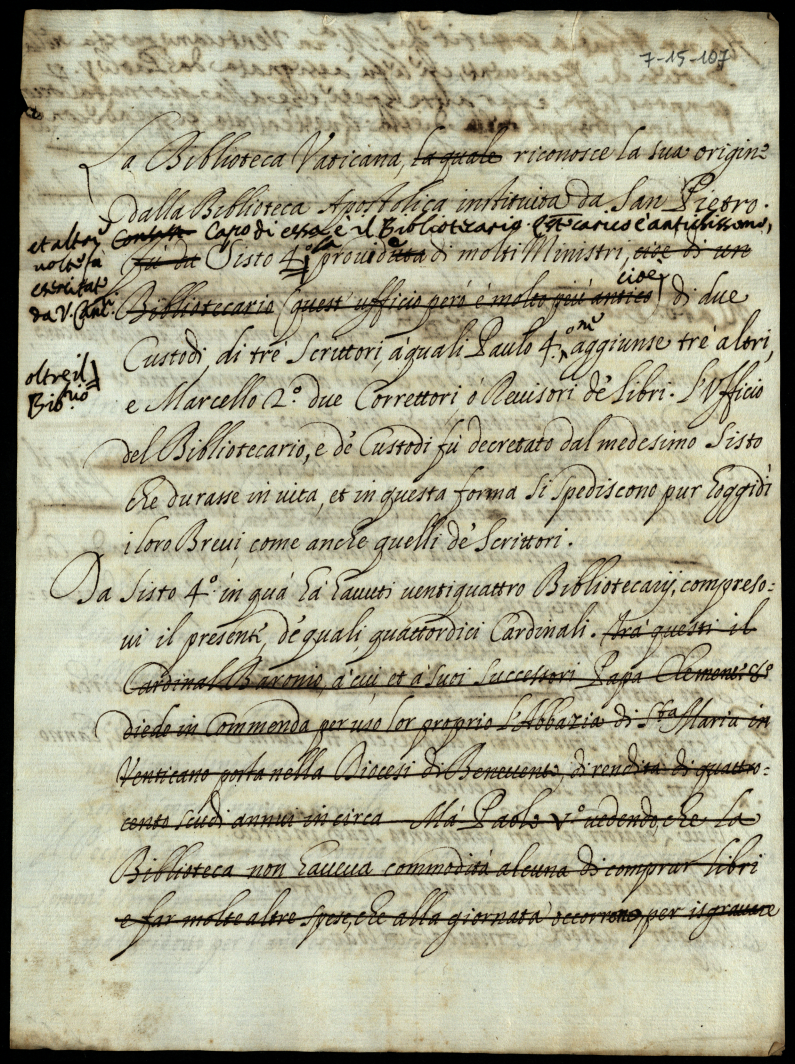 7-15-107
La Biblioteca Vaticana, la quale riconosce la sua origine
dalla Biblioteca Apostolica instituita da San Pietro.
Capo di essa è il Bibliotecario. Questo carico è antichissimo,
et altre
volte fu
esercitato
da V. Card.
fù da Sisto 4.º la providde di molti Ministri, cioè di un
Bibliotecario (quest'ufficio però è molto più antico) cioè di due
Custodi, di trè Scrittori, à quali Paulo 4.º aggiunse trè altri,
oltre il
Bib.rio
e Marcello 2.º due Correttori, ò Revisori dè Libri. L'Ufficio
del Bibliotecario, e dè Custodi fù decretato dal medesimo Sisto
che durasse in vita, et in questa forma si spediscono pur hoggidì
i loro Brevi, come anche quelli dè Scrittori.
Da Sisto 4.º in quà hà havuti ventiquattro Bibliotecarij, compreso=
vi il presente, dè quali quattordici Cardinali. Trà questi il
Cardinal Baronio, à cui et à suoi successori Papa Clemente 8.º
diede in Commenda per uso lor proprio l'Abbazia di S.ta Maria in
Venticano posta nella Diocesi di Benevento, di rendita di quattro=
cento scudi annui in circa Mà Paolo V.º vedendo, che la
Biblioteca non haveva commodità alcuna di comprar libri
e far molte altre spese, che alla giornata occorrono, per isgravare